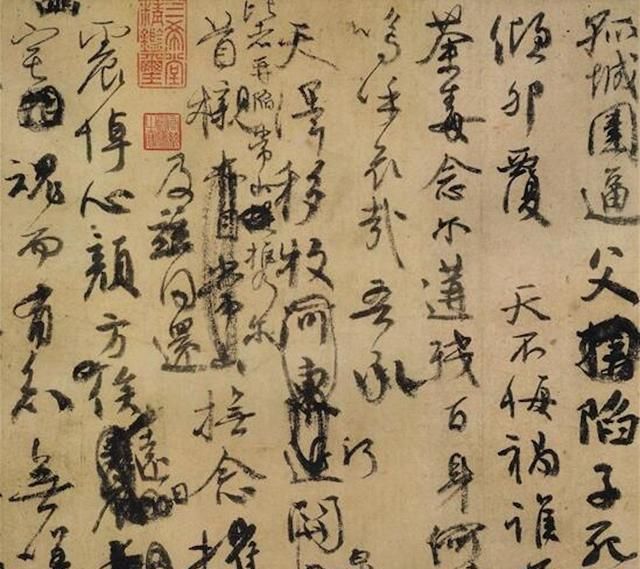 孤城圍逼父陷子死
傾卵覆天不悔禍誰
荼毒念爾遘殘百身何
嗚呼哀哉吾承
天澤移牧河東近關
比者再陷常山攜爾
首櫬常山撫念摧
及茲同還
震悼心顏方俟遠日
宅魂而有知無嗟
三希堂精鑑璽